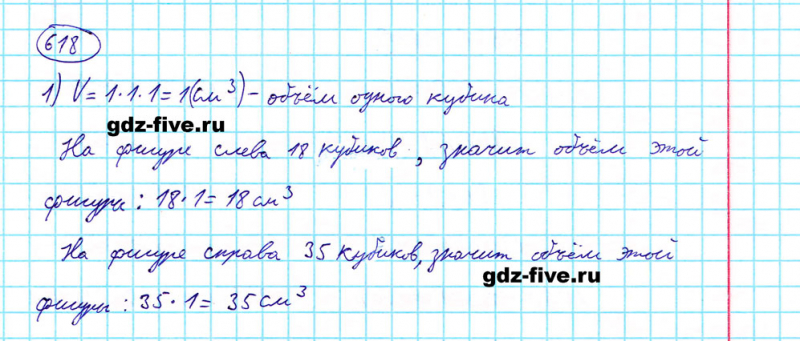 618
1) V = 1·1·1 = 1(см³) - объём одного кубика
gdz-five.ru
На фигуре слева 18 кубиков, значит объём этой
фигуры: 18·1 = 18 см³
На фигуре справа 35 кубиков, значит объём этой
gdz-five.ru
фигуры: 35·1 = 35 см³